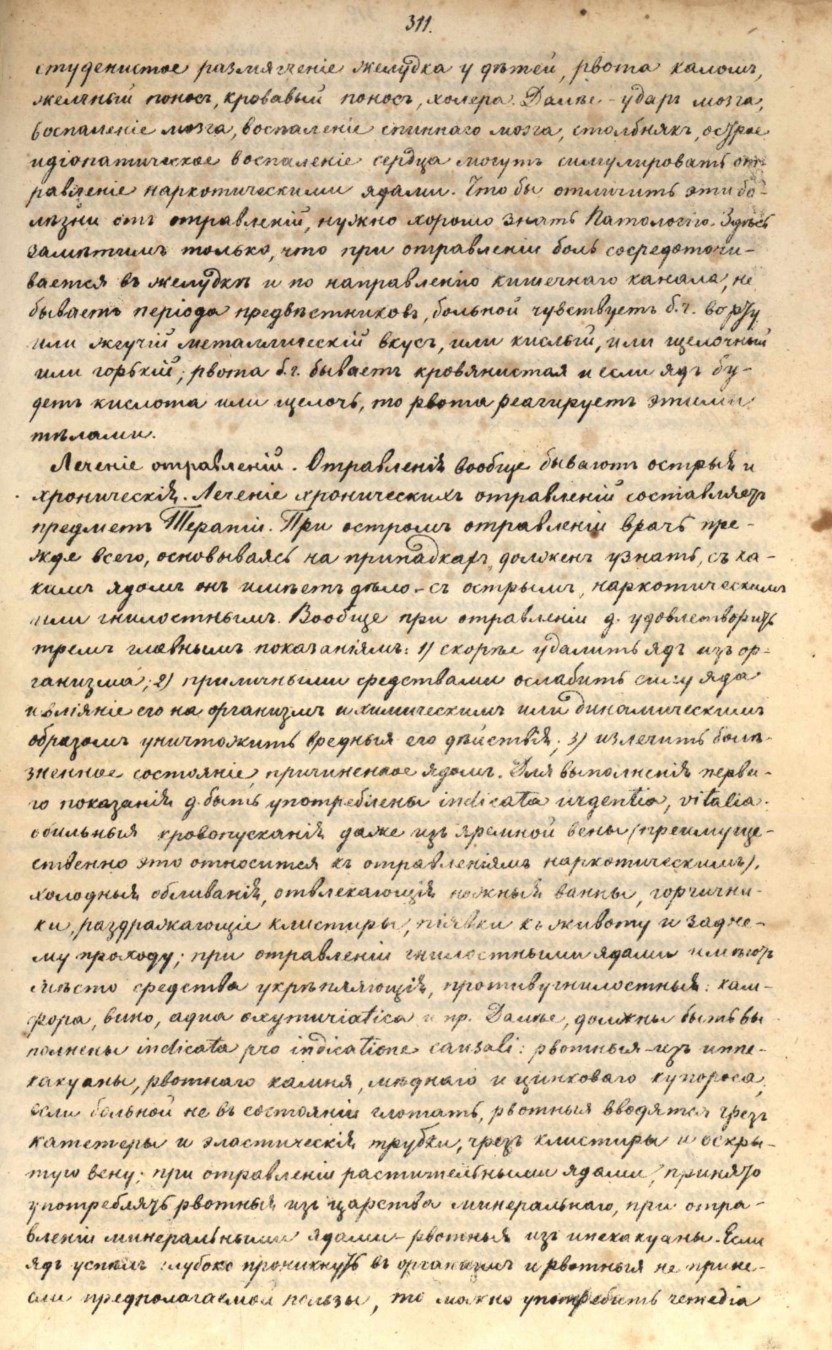 311.
студенистое размягченіе желудка у дѣтей, рвота каломъ,
желчный поносъ, кровавый поносъ, холера. Далѣе - ударъ мозга,
воспаленіе мозга, воспаленіе спиннаго мозга, столбнякъ, острое
идіопатическое воспаленіе сердца могутъ симулировать от-
равленіе наркотическими ядами. Что бы отличить эти бо-
лѣзни отъ отравленій, нужно хорошо знать Патологію. Здѣсь
замѣтимъ только, что при отравленіи боль сосредоточи-
вается въ желудкѣ и по направленію кишечнаго канала, не
бываетъ періода предвѣстниковъ, больной чувствуетъ б.ч. во рту
или жгучій металлическій вкусъ, или кислый, или щелочный
или горькій; рвота б.ч. бываетъ кровянистая и если ядъ бу-
детъ кислота или щелочь, то рвота реагируетъ этими
тѣлами.
Леченіе отравленій. Отравленія вообще бываютъ острыя и
хроническія. Леченіе хроническихъ отравленій составляетъ
предметъ Терапіи. При остромъ отравленіи врачъ пре-
жде всего, основываясь на припадкахъ, долженъ узнать, съ ка-
кимъ ядомъ онъ имѣетъ дѣло - съ острымъ, наркотическимъ
или гнилостнымъ. Вообще при отравленіи д. удовлетворить
тремъ главнымъ показаніямъ: 1) скорѣе удалить ядъ изъ ор-
ганизма; 2) приличными средствами ослабить силу яда
и вліяніе его на организмъ и химическимъ или динамическимъ
образомъ уничтожить вредныя его дѣйствія; 3) излечить болѣ-
зненное состояніе, причиненное ядомъ. Для выполненія перва-
го показанія д. быть употреблены indicata urgentia, vitalia.
обильныя кровопусканія даже изъ яремной вены (преимуще-
ственно это относится къ отравленіямъ наркотическимъ),
холодныя обливанія, отвлекающія ножныя ванны, горчични-
ки, раздражающіе клистиры, піявки къ животу и задне-
му проходу; при отравленіи гнилостными ядами имѣютъ
мѣсто средства укрѣпляющія, противугнилостныя: кам-
фора, вино, aqua oxymuriatica и пр. Далѣе, должны быть вы
полнены indicata pro indicatione causali: рвотныя - изъ ипе-
какуаны, рвотнаго камня, мѣднаго и цинковаго купороса,
если больной не въ состояніи глотать, рвотныя вводятся чрезъ
катетеры и эластическія трубки, чрезъ клистиры и вскры-
тую вену; при отравленіи растительными ядами, принято
употреблять рвотныя изъ царства минеральнаго, при отра-
вленіи минеральными ядами - рвотныя изъ ипекакуаны. Если
ядъ успѣлъ глубоко проникнуть въ организмъ и рвотныя не прине-
сли предполагаемой пользы, то можно употребить remedia